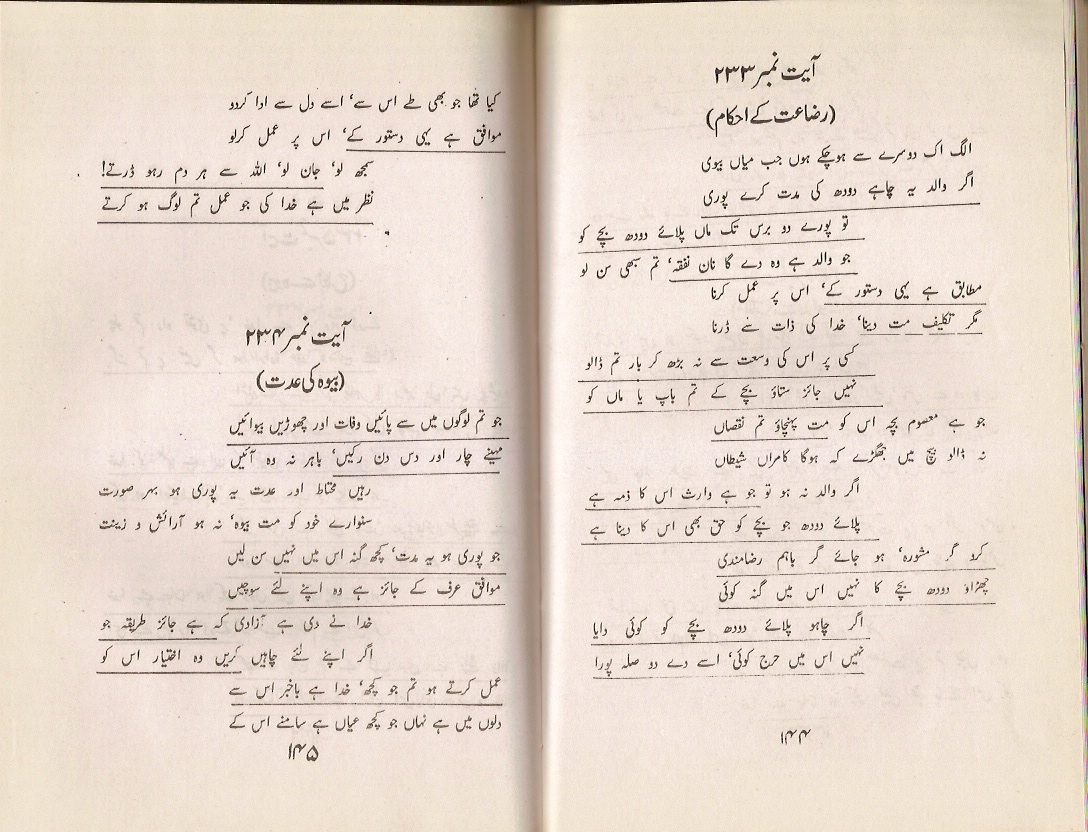 آیت نمبر ۲۳۳
(رضاعت کے احکام)
الگ اک دوسرے سے ہوچکے ہوں جب میاں بیوی
اگر والد یہ چاہے دودھ کی مدت کرے پوری
تو پورے دو برس تک ماں پلائے دودھ بچے کو
جو والد ہے وہ دے گا نان نفقہ، تم سبھی سن لو
مطابق ہے یہی دستور کے، اس پر عمل کرنا
مگر تکلیف مت دینا، خدا کی ذات سے ڈرنا
کسی پر اس کی وسعت سے نہ بڑھ کر بار تم ڈالو
نہیں جائز ستاؤ بچے کے تم باپ یا ماں کو
جو ہے معصوم بچہ اس کو مت پہنچاؤ تم نقصاں
نہ ڈالو بیچ میں جھگڑے کہ ہوگا کامراں شیطاں
اگر والد نہ ہو تو جو ہے وارث اس کا ذمہ ہے
پلائے دودھ جو بچے کو حق بھی اس کا دینا ہے
کرو گر مشورہ، ہو جائے گر باہم رضامندی
چھڑاؤ دودھ بچے کا نہیں اس میں گنہ کوئی
اگر چاہو پلائے دودھ بچے کو کوئی دایا
نہیں اس میں حرج کوئی، اسے دے دو صلہ پورا
۱۴۴
کیا تھا جو بھی طے اس سے، اسے دل سے ادا کردو
موافق ہے یہی دستور کے، اس پر عمل کرلو
سمجھ لو، جان لو، اللہ سے ہر دم رہو ڈرتے!
نظر میں ہے خدا کی جو عمل تم لوگ ہو کرتے
آیت نمبر ۲۳۴
(بیوہ کی عدت)
جو تم لوگوں میں سے پائیں وفات اور چھوڑیں بیوائیں
مہینے چار اور دس دن رکیں، باہر نہ وہ آئیں
رہیں محتاط اور عدت یہ پوری ہو بہر صورت
سنوارے خود کو مت بیوہ، نہ ہو آرائش و زینت
جو پوری ہو یہ مدت، کچھ گنہ اس میں نہیں سن لیں
موافق عرف کے جائز ہے وہ اپنے لئے سوچیں
خدا نے دی ہے آزادی کہ ہے جائز طریقہ جو
اگر اپنے لئے چاہیں کریں وہ اختیار اس کو
عمل کرتے ہو تم جو کچھ، خدا ہے باخبر اس سے
دلوں میں ہے نہاں جو کچھ عیاں ہے سامنے اس کے
۱۴۵